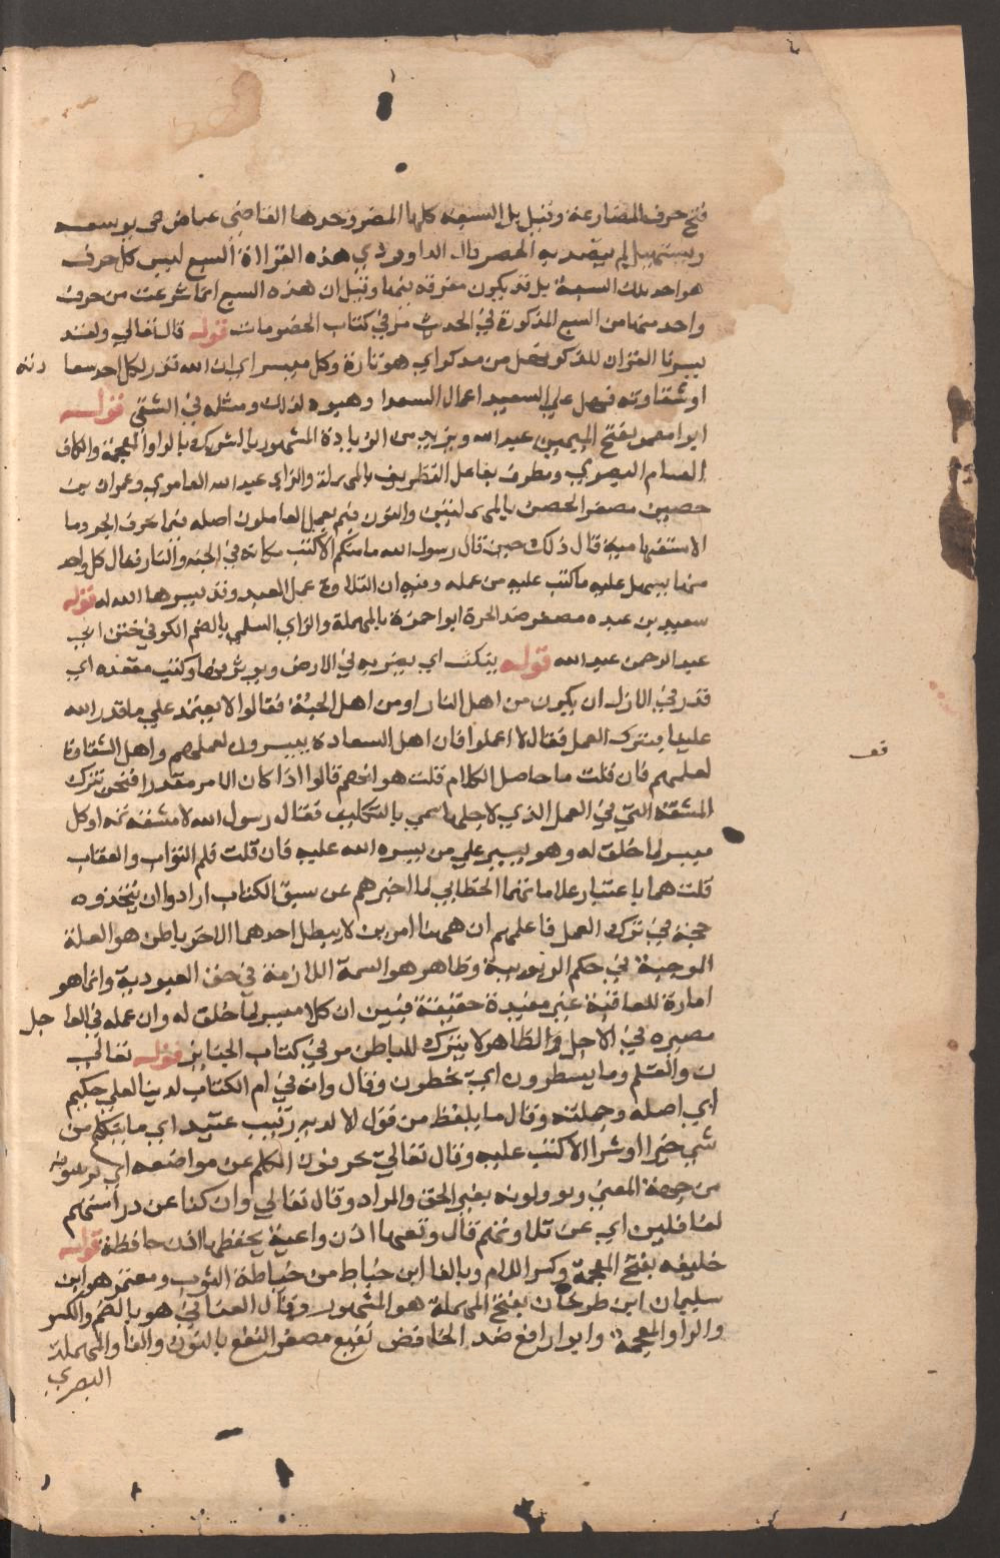 فتح حرف المضارعة وقيل بل السبعة كلها المضر وحدها القاضي عياض هي توسعه
وتسهيل لم يقصد به الحصر وقال الداودي هذه القراءة السبع ليس كل حرف
هو احد تلك السبعة بل قد يكون مفرقة فيها وقيل ان هذه السبع انما شرعت من حرف
واحد منها من السبع المذكورة في الحديث مر في كتاب الخصومات قوله قال تعالى ولقد
يسرنا القران للذكر فهل من مدكر اي هو تارة وكل ميسر اي ان الله قدر لكل احد سعا دته
او شقاوته فيسهل على السعيد اعمال السعدا وهيوه لذلك ومثله في الشقي قوله
ابو معمر بفتح الميمين عبد الله ويزيد من الزيادة المشهور بالرشك بالراوالمعجمة والكاف
القسام البصري ومطرف بفاعل التطريف بالمهملة والراي عبد الله العامري وعمران بن
حصين مصغر الحصن بالمهملتين والنون فيم يعمل العاملون اصله فيما حرف الجر وما
الاستفهامية قال ذلك حين قال رسول الله ما منكم الا كتب مكانه في الجنه والنار فقال كل واحد
منها يسهل عليه ما كتب عليه من عمله وفيه ان التلاوة عمل العبد وقد يسرها الله له قوله
سعيد بن عبده مصغر ضد الحرة ابو حمزة بالمهملة والزاي السلمي بالضم الكوفي ختن ابي
عبد الرحمن عبد الله قوله ينكت اي يضرب في الارض ويؤثر فيها وكتب مقعده اي
قدر في الازل ان يكون من اهل النار او من اهل الجنة فقالوا لا نعتمد علي ما قدر الله
علينا ونترك العمل فقال لا اعملوا فان اهل السعادة ييسرون لعملهم واهل الشقاوة
لعملهم فان قلت ما حاصل الكلام قلت هو انهم قالوا اذا كان الامر مقدرا فنحن نترك
المشقة التي في العمل الذي لاجلها سمي بالتكليف فقال رسول الله لا مشقة ثمه اذ كل
ميسر لما خلق له وهو يسير علي من يسره الله عليه فان قلت فلم الثواب والعقاب
قلت هما باعتبار علاماتهما الخطابي لما اخبرهم عن سبق الكتاب ارادوا ان يتخذوه
حجة في ترك العمل فاعلمهم ان ههنا امرين لا يبطل احدهما الاخر باطن هو العلة
الموجبة في حكم الربوبية وظاهر هو السمة اللازمة في حق العبودية وانما هو
امارة للعاقبة غير مفيدة حقيقة فبين ان كلا ميسر لما خلق له وان عمله في العا جل
مصيره في الاجل والظاهر لا يترك للباطن مر في كتاب الجنايز قوله تعالى
ن والقلم وما يسطرون اي يخطون وقال وانه في ام الكتاب لدينا لعلي حكيم
اي اصله وجملته وقال ما يلفظ من قول الا لديه رقيب عتيد اي ما يتكلم من
شي خيرا او شرا الا كتب عليه وقال تعالى يحرفون الكلم عن مواضعه اي يزيلونه
من جهة المعنى ويوولونه بغير الحق والمراد وقال تعالى وان كنا عن دراستهم
لغافلين اي عن تلاوتهم قال وتعيها اذن واعية يحفظها اذن حافظة قوله
خليفه بفتح المعجمة وكسر اللام وبالفا ابن خياط من خياطة الثوب ومعتمر هو ابن
سليمان ابن طرخان بفتح المهملة هو المشهور وقال الغساني هو بالضم والكسر
والراو المعجمة وابو رافع ضد الخافض نفيع مصغر النفع بالنون والفا والمهملة
البصري
قف